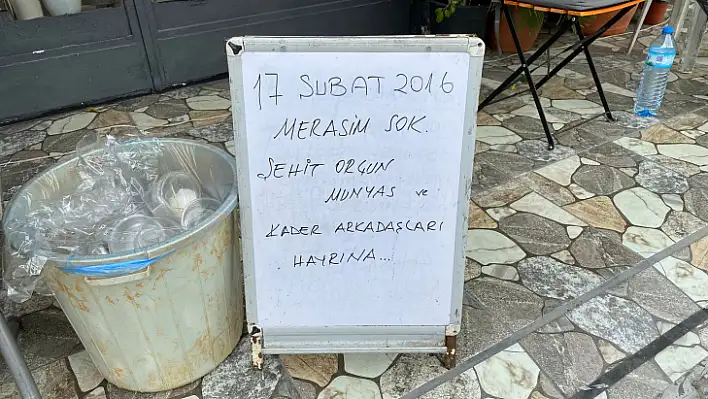 17 ŞUBAT 2016
MERASİM SOK.
ŞEHİT ORÇUN
MUNYAS ve
KADER ARKADAŞLARI
HAYRINA...